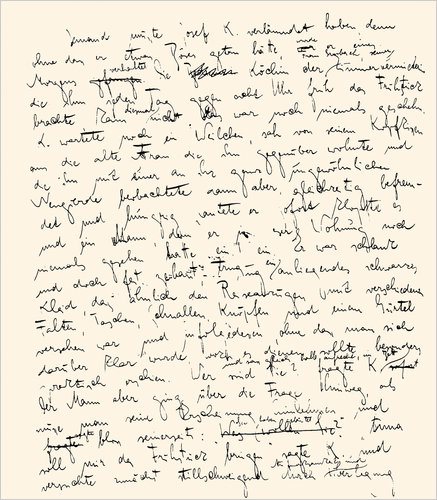 Jemand mußte Josef K. verläumdet haben denn
ohne daß er etwas Böses getan hätte wurde er eines
Morgens verhaftet Die Köchin der Zimmervermieterin
Frau Grubach, seiner
die ihm jeden Tag gegen acht Uhr früh das Frühstück
brachte kam diesmal nicht Das war noch niemals geschehn.
K. wartete noch ein Weilchen, sah von seinem Kopfkissen
aus die alte Frau die ihm gegenüber wohnte und
die ihn mit einer an ihr ganz ungewöhnlichen
Neugierde beobachtete dann aber, gleichzeitig befrem-
det und hungrig, läutete er. Sofort klopfte es
und ein Mann, den er in dieser Wohnung noch
niemals gesehen hatte trat ein. Er war schlank
und doch fest gebaut, er trug ein anliegendes schwarzes
Kleid das ähnlich den Reiseanzügen mit verschiedenen
Falten, Taschen, Schnallen, Knöpfen und einem Gürtel
versehen war und infolgedessen ohne daß man sich
darüber klar wurde wozu es dienen sollte besonders
praktisch erschien. "Wer sind Sie?" fragte K.
und saß gleich halb aufrecht im Bett
Der Mann aber ging über die Frage hinweg, als
müsse man seine Erscheinung hinnehmen und
sagte bloß seinerseits: "Sie haben geläutet?" "Anna
soll mir das Frühstück bringen" sagte K. und
versuchte zunächst stillschweigend durch Aufmerksamkeit und Überlegung